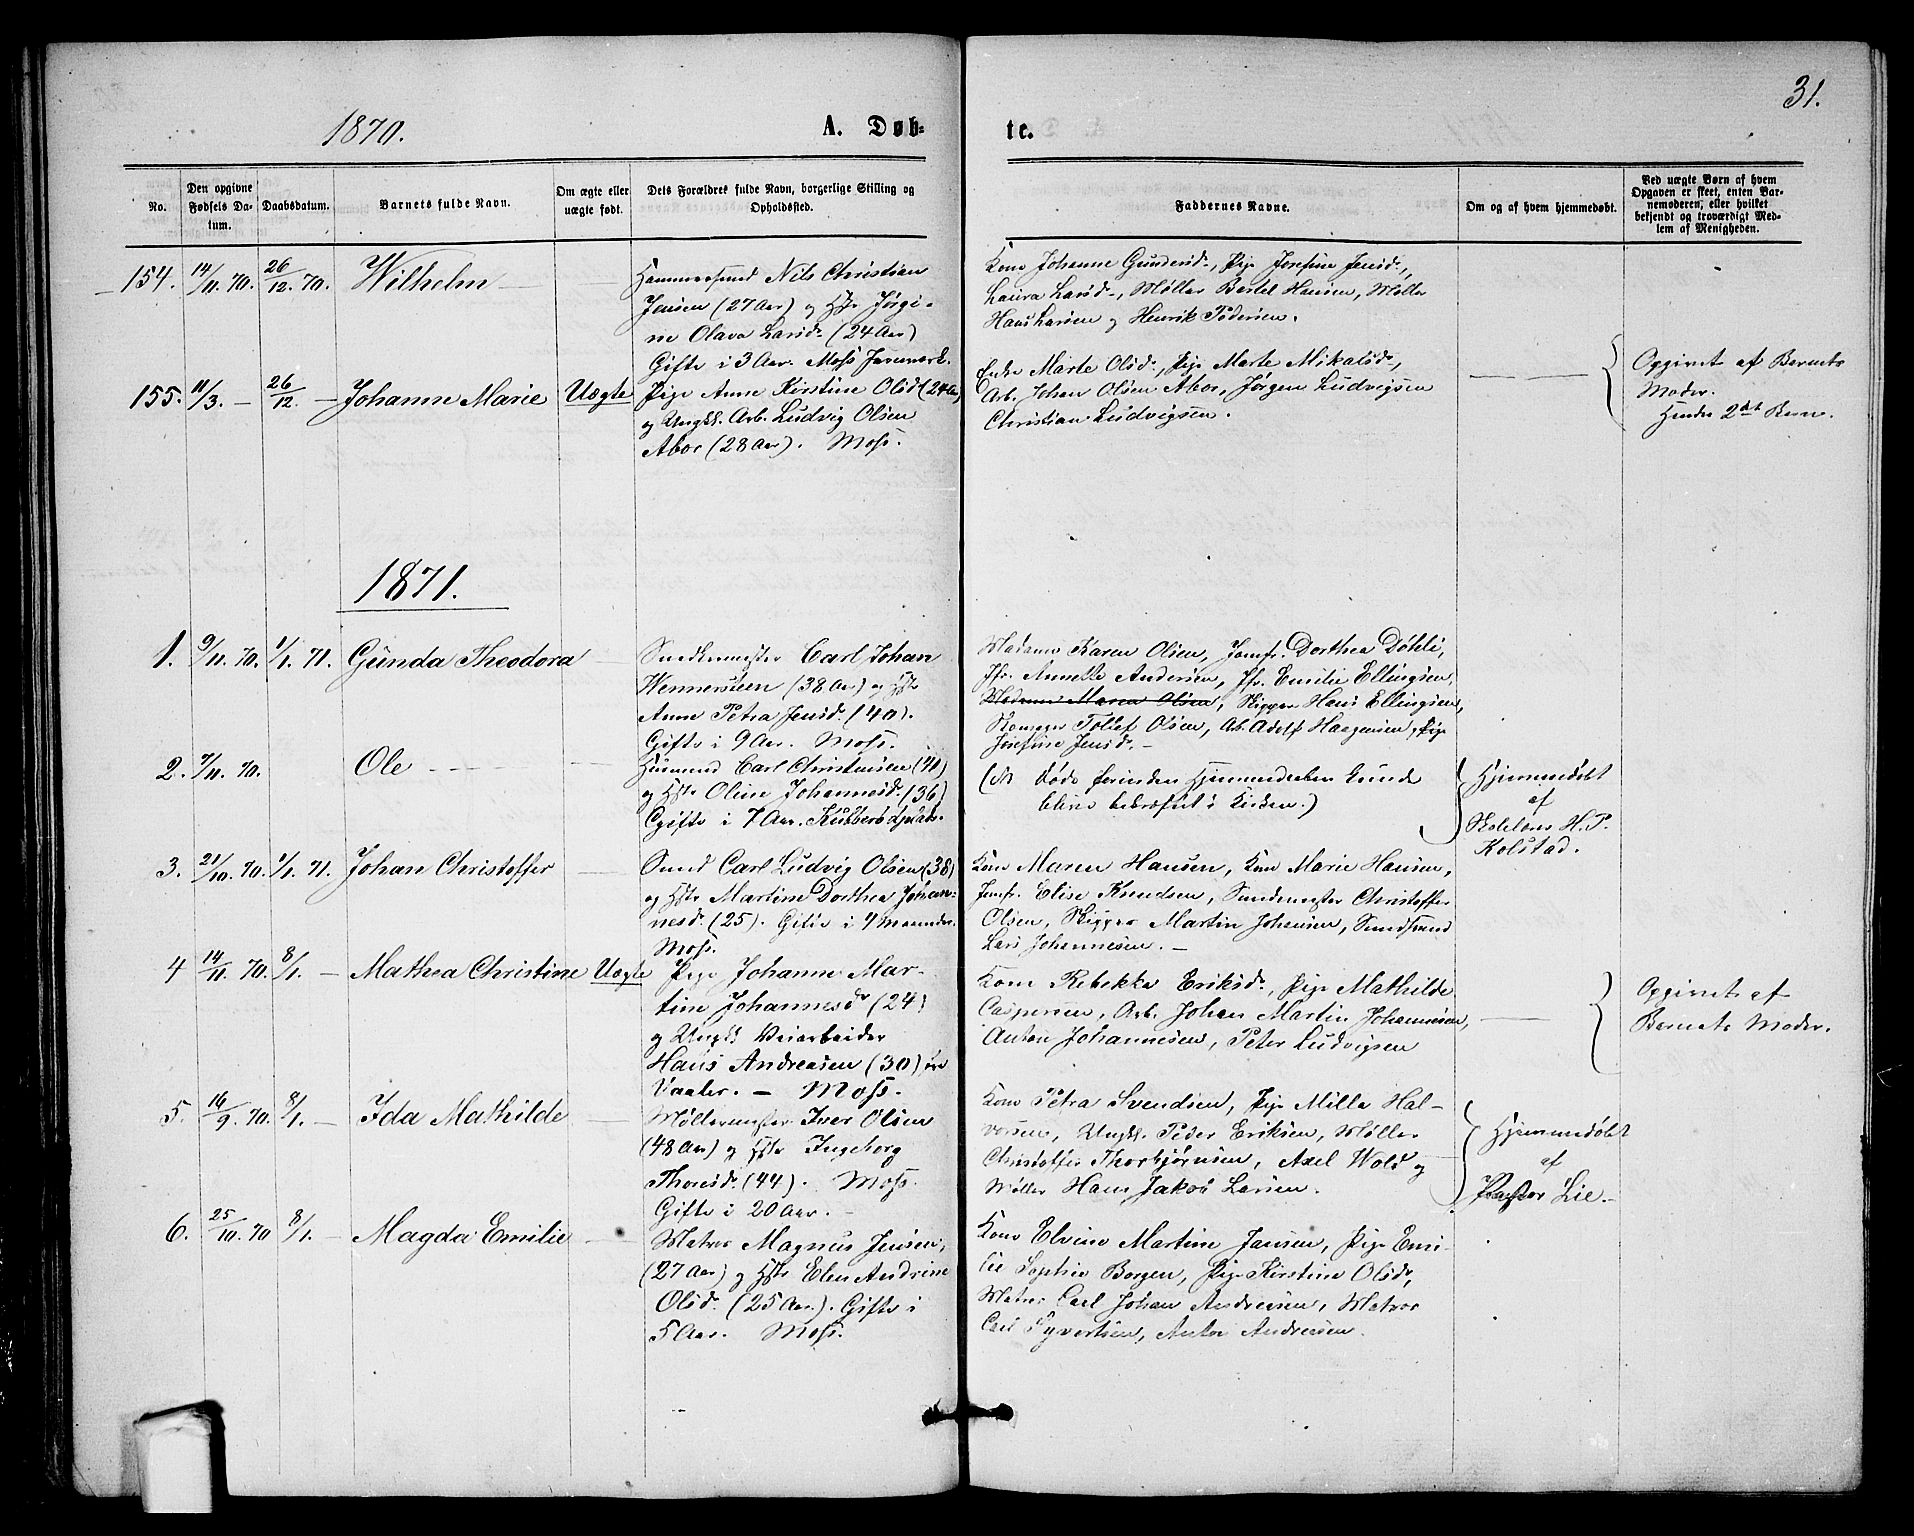 31.
1870.
A. Døb-
te.
No.
Den opgivne Fødsels Da-
tum.
Daabsdatum.
Barnets fulde Navn.
Om ægte eller
uægte født.
Dets Forældres fulde Navn, borgerlige Stilling og
Opholdssted.
Faddernes Navne.
Om og af hvem hjemmedøbt.
Ved uægte Børn af hvem
Opgaven er skeet, enten Bar-
nemoderen, eller hvilket
bekjendt og troværdigt Med-
lem af Menigheden.
154. 14/11. 70. 26/12. 70. Wilhelm
Hammersmed Nils Christian
Jensen (27 Aar) og Hstr Jørgi-
ne Olava Larsd. (24 Aar)
Gifte i 3 Aar. Moss Jernverk.
Kone Johanne Gundersd., Pige Josefine Jensd.,
Laura Larsd., Møller Bertel Hansen, Møller
Hans Larsen og Henrik Pedersen.
155. 11/3. - 26/12. - Johanne Marie Uægte
Pige Anne Kirstine Olsd (24 Aar)
og Ungk. Arb. Ludvig Olsen
Aboe (28 Aar). Moss.
Enke Marte Olsd., Pige Marte Mikalsd.,
Arb. Johan Olsen Aboe, Jørgen Ludvigsen
Christian Ludvigsen.
Opgivet af Barnets
Moder.
Hendes 2det Barn.
1871.
1. 9/11. 70. 1/1. 71. Gunda Theodora
Snedkermester Carl Johan
Wennersteen (38 Aar) og Hstr
Anne Petra Jensd. (40).
Gifte i 9 Aar. Moss.
Madame Karen Olsen, Jomfr. Dorthea Døhli,
Jfr. Annette Andersen, Jfr. Emilie Ellingsen,
Madame Maren Olsen, Skipper Hans Ellingsen,
Tollef Olsen, Arb. Adolf Haagensen, Pige
Josefine Jensd. -
2. 7/11. 70. Ole
Husmand Carl Christensen (41)
og Hstr Oline Johannesd. (36)
Gifte i 7 Aar.
(NB døde forinden Hjemmedaaben kunde
blive bekræftet i Kirken.)
Hjemmedøbt
af
Skolelærer H. P.
Kolstad.
3. 21/10. 70. 1/1. 71. Johan Christoffer
Smed Carl Ludvig Olsen (38)
og Hstr Martine Dorthea Johan-
nesd. (25). Gifte i 4 Maaneder.
Moss.
Kone Maren Hansen, Kone Marie Hansen,
Jomfr. Elise Knudsen, Christoffer
Olsen, Skipper Martin Johansen,
Lars Johannesen. -
4 14/11. 70. 8/1. - Mathea Christine Uægte
Pige Johanne Mar-
tine Johannesd (24)
og Ungk Veiarbeider
Hans Andreasen (30) fra
Vaaler. - Moss.
Kone Rebekka Eriksd., Pige Mathilde
Caspersen, Arb. Johan Martin Johannesen,
Anton Johannesen, Peter Ludvigsen
Opgivet af
Barnets Moder.
5. 16/9. 70. 8/1. - Ida Mathilde
Møllermester Iver Olsen
(48 Aar) og Hstr Ingeborg
Thoresd. (44). Moss.
Gifte i 20 Aar. -
Kone Petra Svendsen, Pige Mille Hal-
vorsen, Ungk. Peder Eriksen, Møller
Christoffer Thorbjørnsen, Axel Wold og
Møller Hans Jakob Larsen.
Hjemmedøbt
af
Pastor Lie.
6. 25/10. 70 8/1. - Magda Emilie
Matros Magnus Jensen,
(27 Aar) og Hstr Elen Andrine
Olsd. (25 Aar). Gifte i
5 Aar. Moss.
Kone Elvine Martine Jansen, Pige Emi-
lie Sophie Borgen, Pige Kirstine Olsd.,
Matros Carl Johan Andreasen, Matros
Carl Syvertsen, Anton Andreasen.